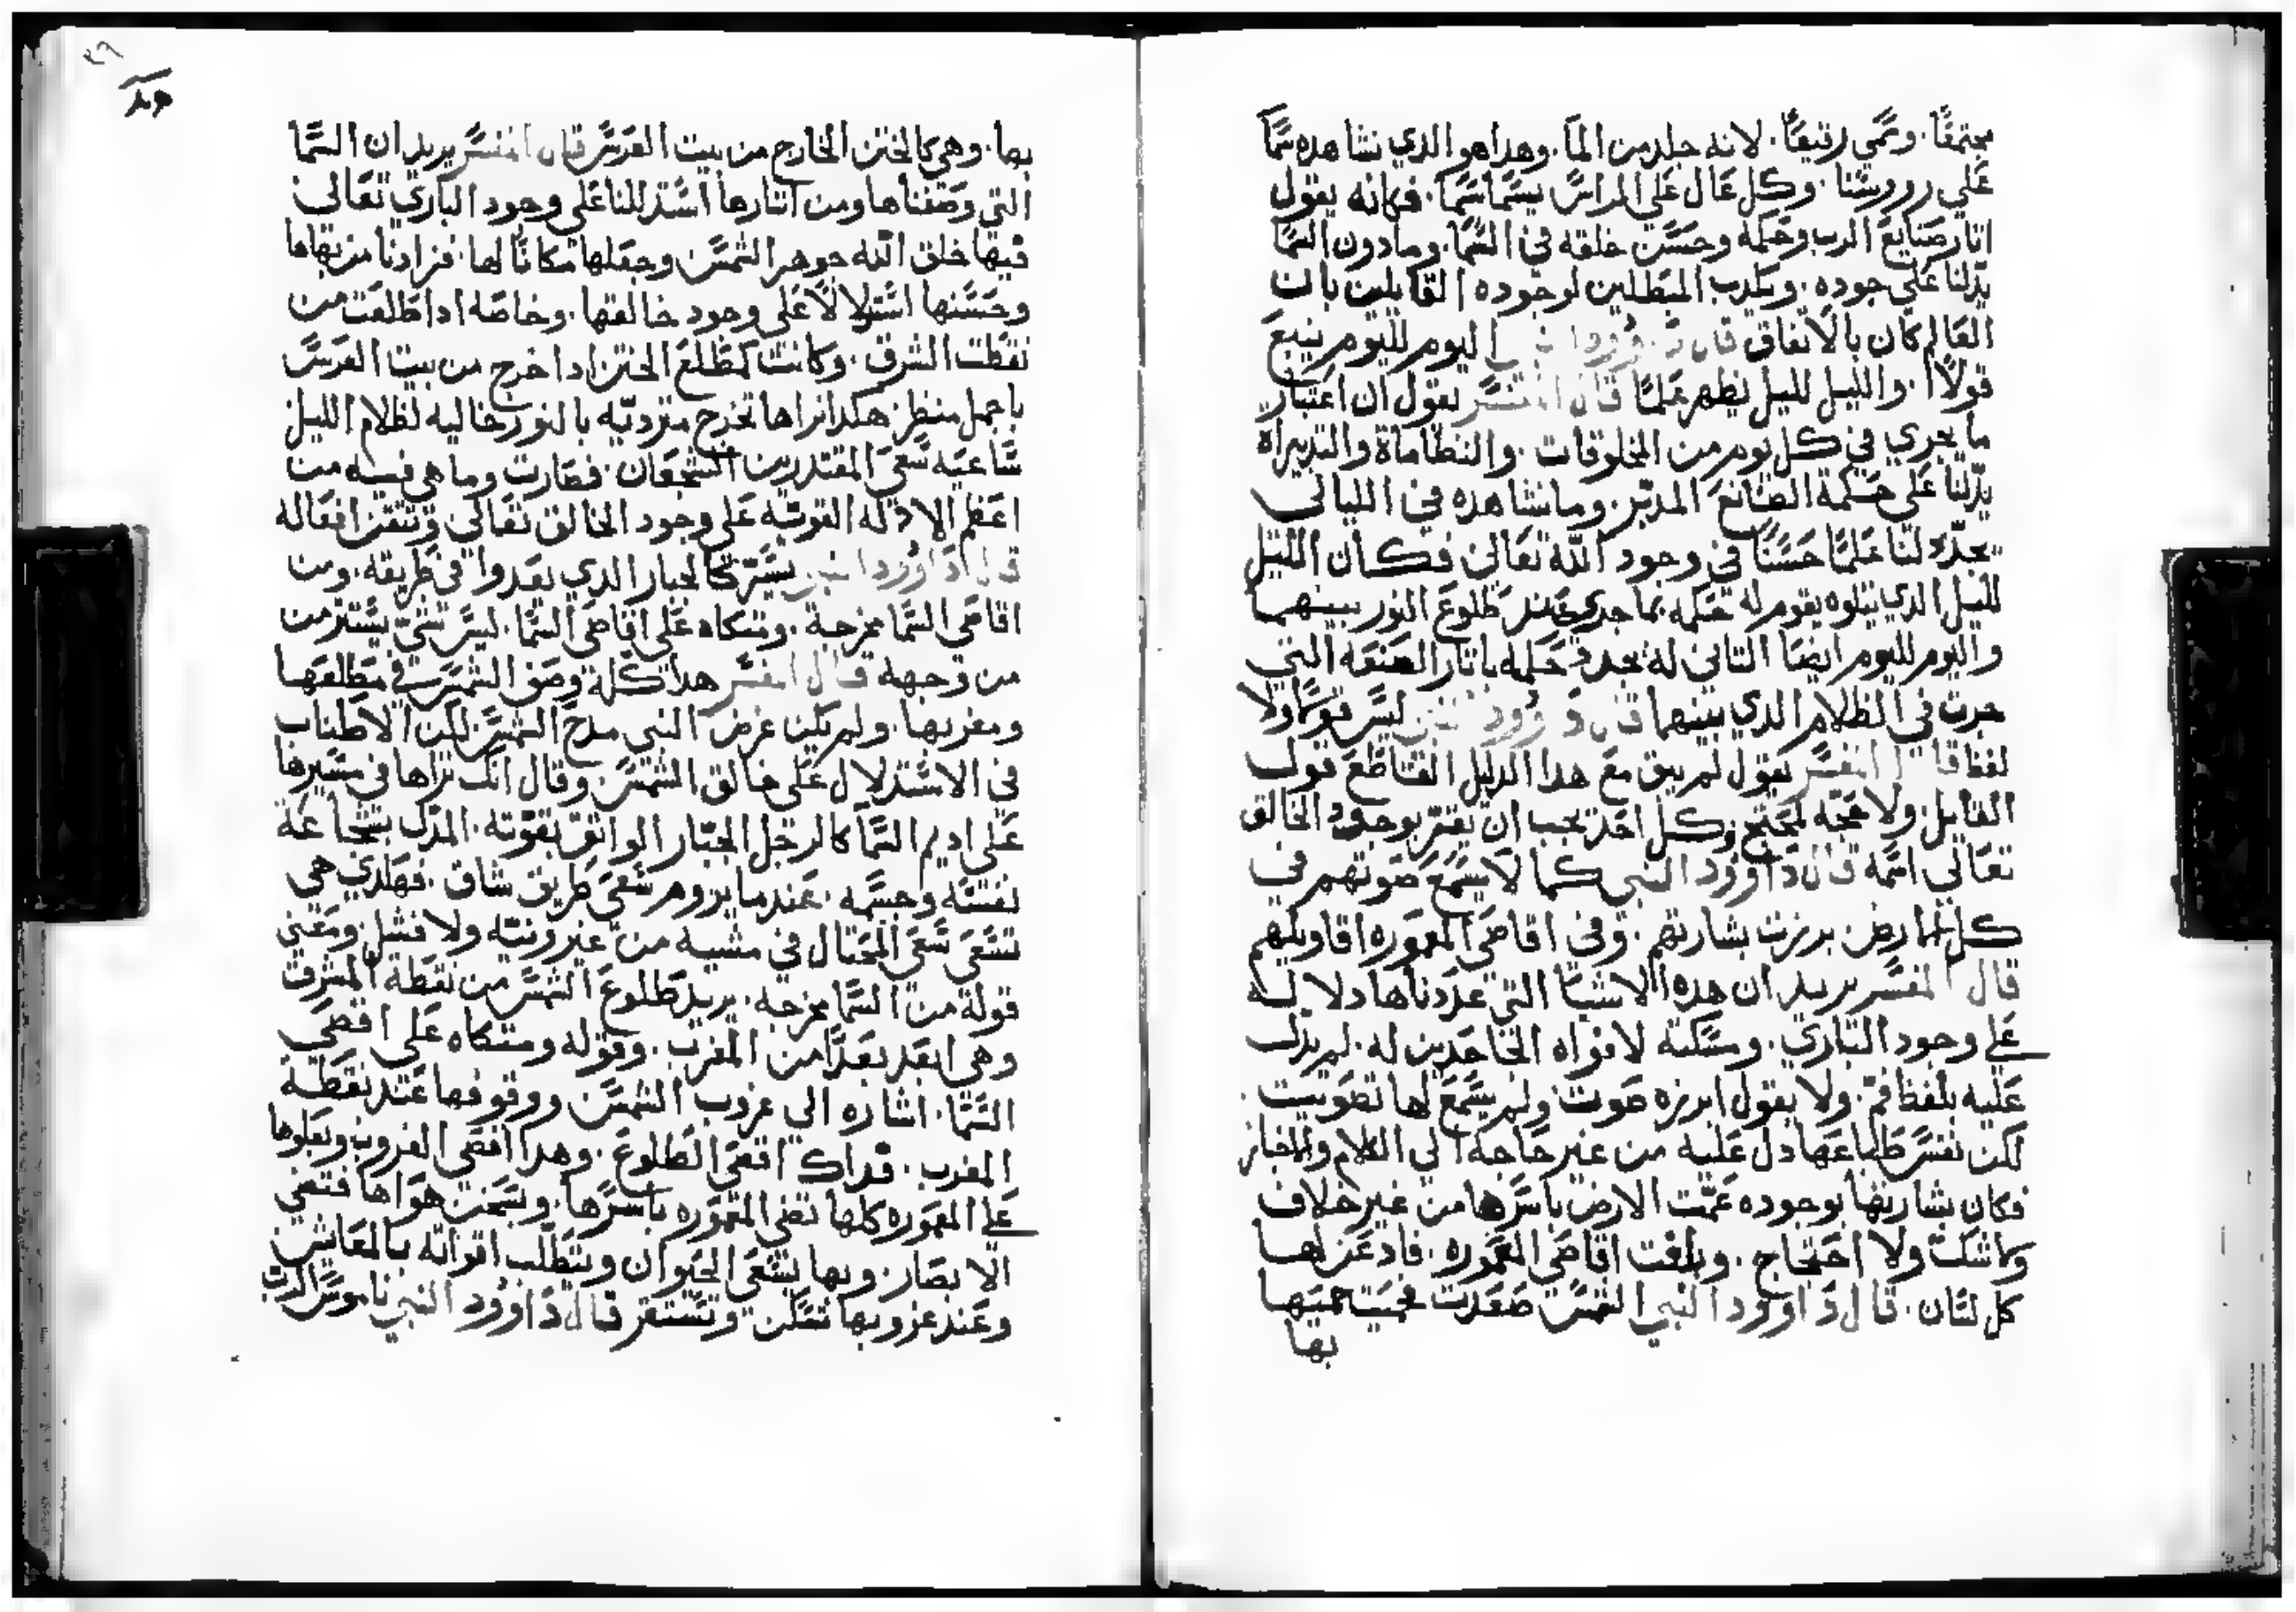 مجتمعًا. وسمي رقيعًا. لانه جلد من الما. وهدا هو الدي نشاهده سما
علي رووسنا. وكل عال علي الراس يسما سما. فكانه يقول
اتار صنايع الرب وحكمه وحسن خلقه في السما. وما دون السما
يدلنا علي جوده. ويكدب المبطلين لوجوده القايلين بان
العالم كان بالاتفاق قال داوود النبي اليوم لليوم ينبع
قولاً. والليل لليل يظهر علمًا قال المفسر يقول ان اعتبار
ما يجري في كل يوم من المخلوقات. والنظاماة والتدبيراة
يدلنا علي حكمة الصانع المدبر. وما نشاهده في الليالي
يجدد لنا علمًا حسنًا في وجود الله تعالي فكان الليل
لليل الدي يتلوه يقوم له حكمه بما جري عند طلوع النور بينهما
واليوم لليوم ايضا التاني له يجدد حكمه باتار الصنعه التي
جرت في الظلام الدي بينهما قال داوود النبي ليس قولاً ولا
لفظ قال المفسر يقول لم يبق مع هدا الدليل القاطع قول
القايل. ولا حجه لمحتج وكل احد يجب ان يقر بوجود الخالق
تعالي اسمه قال داوود النبي كما لا يسمع صوتهم في
كل الارض برزت بشارتهم. وفي اقاصي المعموره اقاويلهم
قال المفسر يريد ان هده الاشيا التي عددناها دلاله
علي وجود الباري. ومسكته لافواه الجاحدين له. لم يدل
عليه بلفظ فم. ولا يقول ابرزه صوت ولم يسمع لها تصويت.
لكن نفس طباعها دل عليه من غير حاجه الي الكلام والمجاز
فكان بشارتها بوجوده عمت الارض باسرها من غير خلاف
وكا شك ولا احتجاج. وبلغت اقاصي المعموره. فادعن لها
كل لسان. قال داوود النبي الشمس صعدت خيمته فيها
بها
بها. وهي كالختن الخارج من بيت العرس قال المفسر يريد ان السما
التي وصفناها ومن اتارها استدللنا علي وجود الباري تعالي
فيها خلق الله جوهر الشمس وجعلها مكانًا لها. فزادنا من بهاها
وحسنها استدلالاً علي وجود خالقها. وخاصه ادا طلعت من
نقطت الشرق. وكانت كمطلع الختن ادا خرج من بيت العرس
باجمل منظر. هكدا نراها تخرج متردّيه بالنور خاليه لظلام الليل
ساعيه سعي المقتدرين الشجعان. فصارت وما هي فيه من
اعظم الادله القويّه علي وجود الخالق تعالي وتتقن افعاله
قال داوود النبي يسر كالجبار الدي يعدوا في طريقه. ومن
اقاصي السما مخرجة. ومتكاه علي اقاصي السما. ليس شي يستتر من
من وجهه قال المفسر هدا كله وصف الشمس في مطلعها
ومغربها. ولم يكن غرض النبي مدح الشمس لكن الاطناب
في الاستدلال علي خالق الشمس وقال انك تراها في مسيرها
علي اديم السما كالرجل الجبار الواتق بقوته. المدل بشجاعة
نفسه وجسمه. عندما يروم سعي طريق شاق. فهكدي هي
تسعي سعي المختال في مشيه من غير ونيه ولا فشل. ومعني
قوله من السما مخرجه. يريد طلوع الشمس من نقطة المشرق
وهي ابعد بعدًا من المغرب. وقوله ومتكاه علي اقصي
السما. اشاره الي غروب الشمس ووقوفها عند نقطة
المغرب. فداك اقصي الطلوع. وهدا اقصي الغروب وبعلوها
علي المعموره كلها تضي المعموره باسرها. ويسخن هواها فتغني
الابصار. وبها يسعي الحيوان ويتطلب اقواته بالمعاش
وعند غروبها تسكن وتستقر قال داوود النبي ناموس الرب